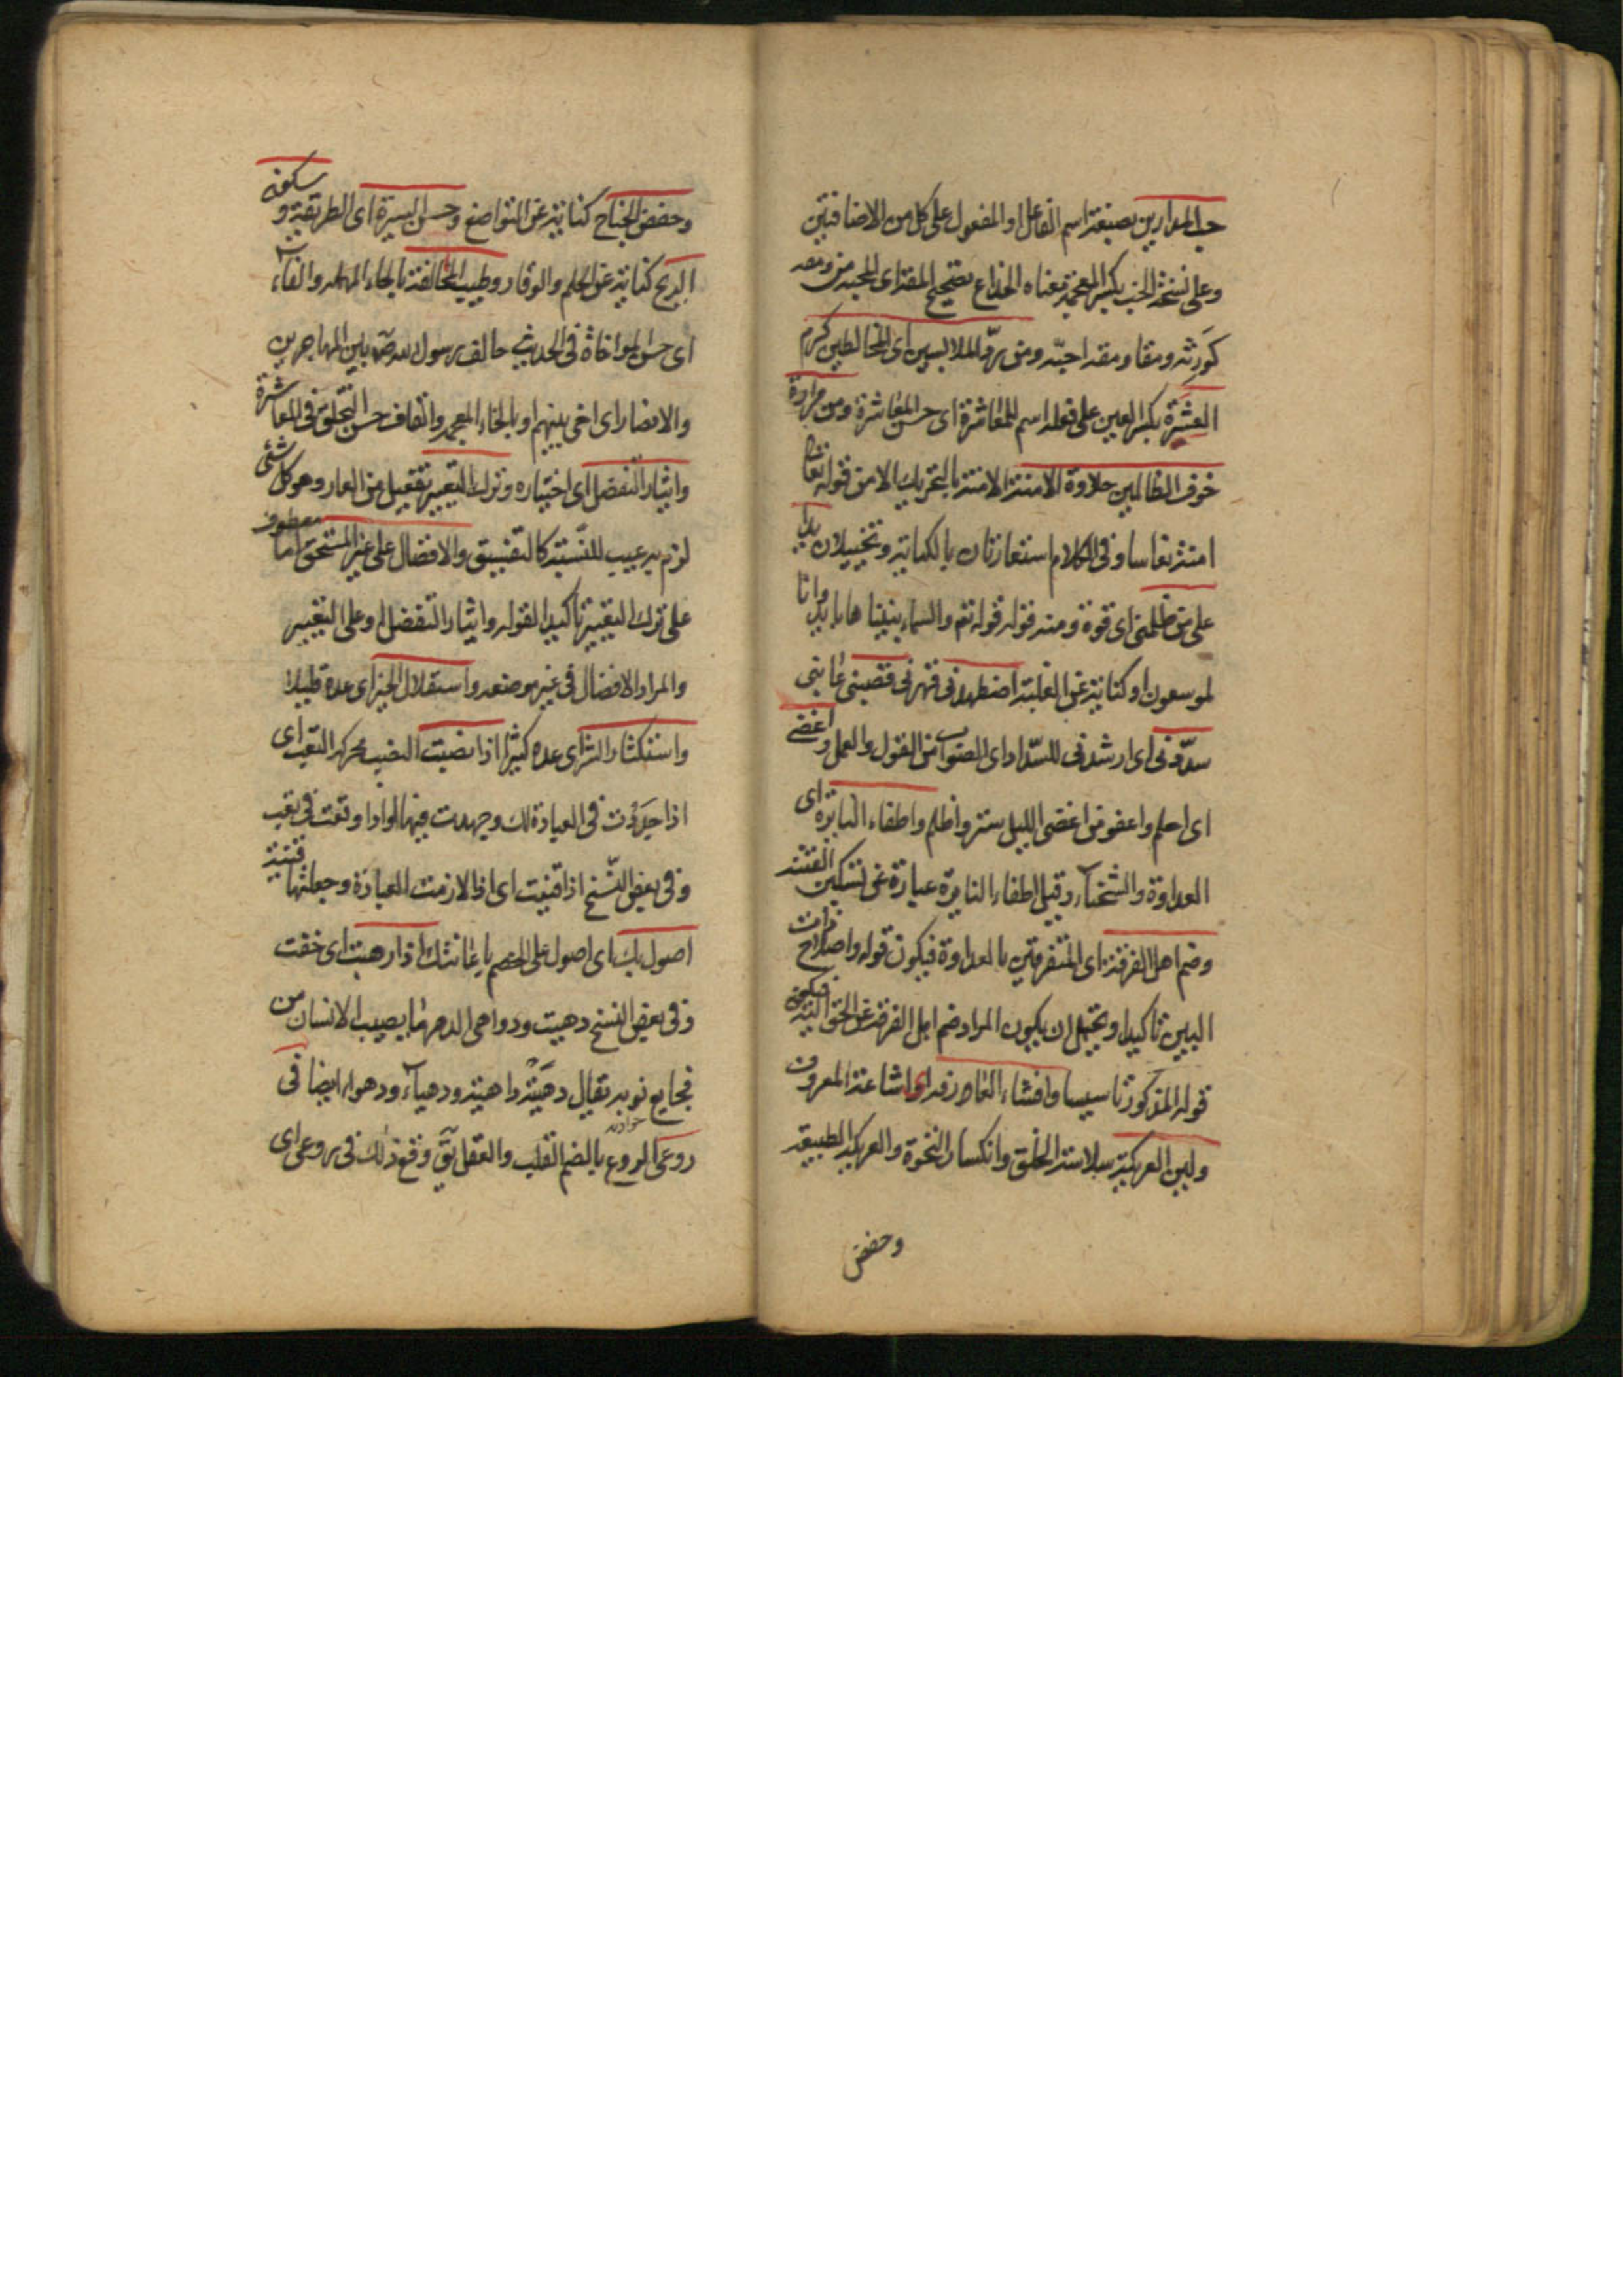 حب المدارين بصيغة اسم الفاعل او المفعول على كل من الاضافتين
وعلى نسخة الخب بكسر المعجمة فمعناه الخداع تصحيح المقة اى المحبة من ومقه
كورثه ومقا ومقة احبه ومن رد الملابسين اى المخالطين كرم
العشرة بكسر العين على فعلة اسم للمعاشرة اى حسن المعاشرة ومن مرارة
خوف الظالمين حلاوة الامنة الامنة بالتحريك الامن قوله تعا
امنة نعاسا وفى الكلام استعارتان بالكناية وتخييلان يدا
على من ظلمنى اى قوة ومنه قوله قوله تعم والسماء بنيناها بايد وانا
لموسعون او كناية عن الغلبة اضطهدنى قهرنى قصبنى عابنى
سددنى اى ارشدنى للسداد اى الصواب من القول والعمل و اغضى
اى احلم واعفو من اغضى الليل ستر واظلم واطفاء النايرة اى
العداوة والشحناء وقيل اطفاء النايرة عبارة عن تسكين الفتنة
وضم اهل الفرقة اى المتفرقين بالعداوة فيكون قوله واصلاح ذات
البين تاكيدا ويحتمل ان يكون المراد ضم اهل الفرقة عن الحق اليه فيكون
قوله المذكور تاسيسا وافشاء العارفة اى اشاعة المعروف
ولين العريكة سلاسة الخلق وانكسار النخوة والعريكة الطبيعة
وخفض
وخفض الجناح كناية عن التواضع وحسن السيرة اى الطريقة و سكون
الريح كناية عن الحلم والوقار وطيب المخالفة بالحاء المهملة والفاء
اى حسن المواخاة فى الحديث حالف رسول الله ص بين المهاجرين
والانصار اى اخى بينهم او بالخاء المعجمة والقاف حسن التخلق فى المعاشرة
وايثار التفضل اى اختياره وترك التعيير تفعيل من العار وهو كل شئ
لزم به عيب للنسبة كالتفسيق والافضال على غير المستحق اما معطوف
على ترك التعيير تاكيدا لقوله وايثار التفضل او على التعيير
والمراد الافضال فى غير موضعه واستقلال الخير اى عده قليلا
واستكثار الشر اى عده كثيرا اذا نصبت النصب محركه التعب اى
اذا جددت فى العبادة لك وجهدت فيها او اذا وقعت فى تعب
وفى بعض النسخ اذا قنيت اى اذا لازمت العبادة وجعلتها قنية
اصول بك اى اصول على الخصم باعانتك اذا رهبت اى خفت
وفى بعض النسخ دهيت ودواهى الدهر ما يصيب الانسان من
فجايع نوبه يقال دهته داهية ودهياء ودهواء ايضا فى
حوادثه
روعى الروع بالضم القلب والعقل يق وقع ذلك فى روعى اى